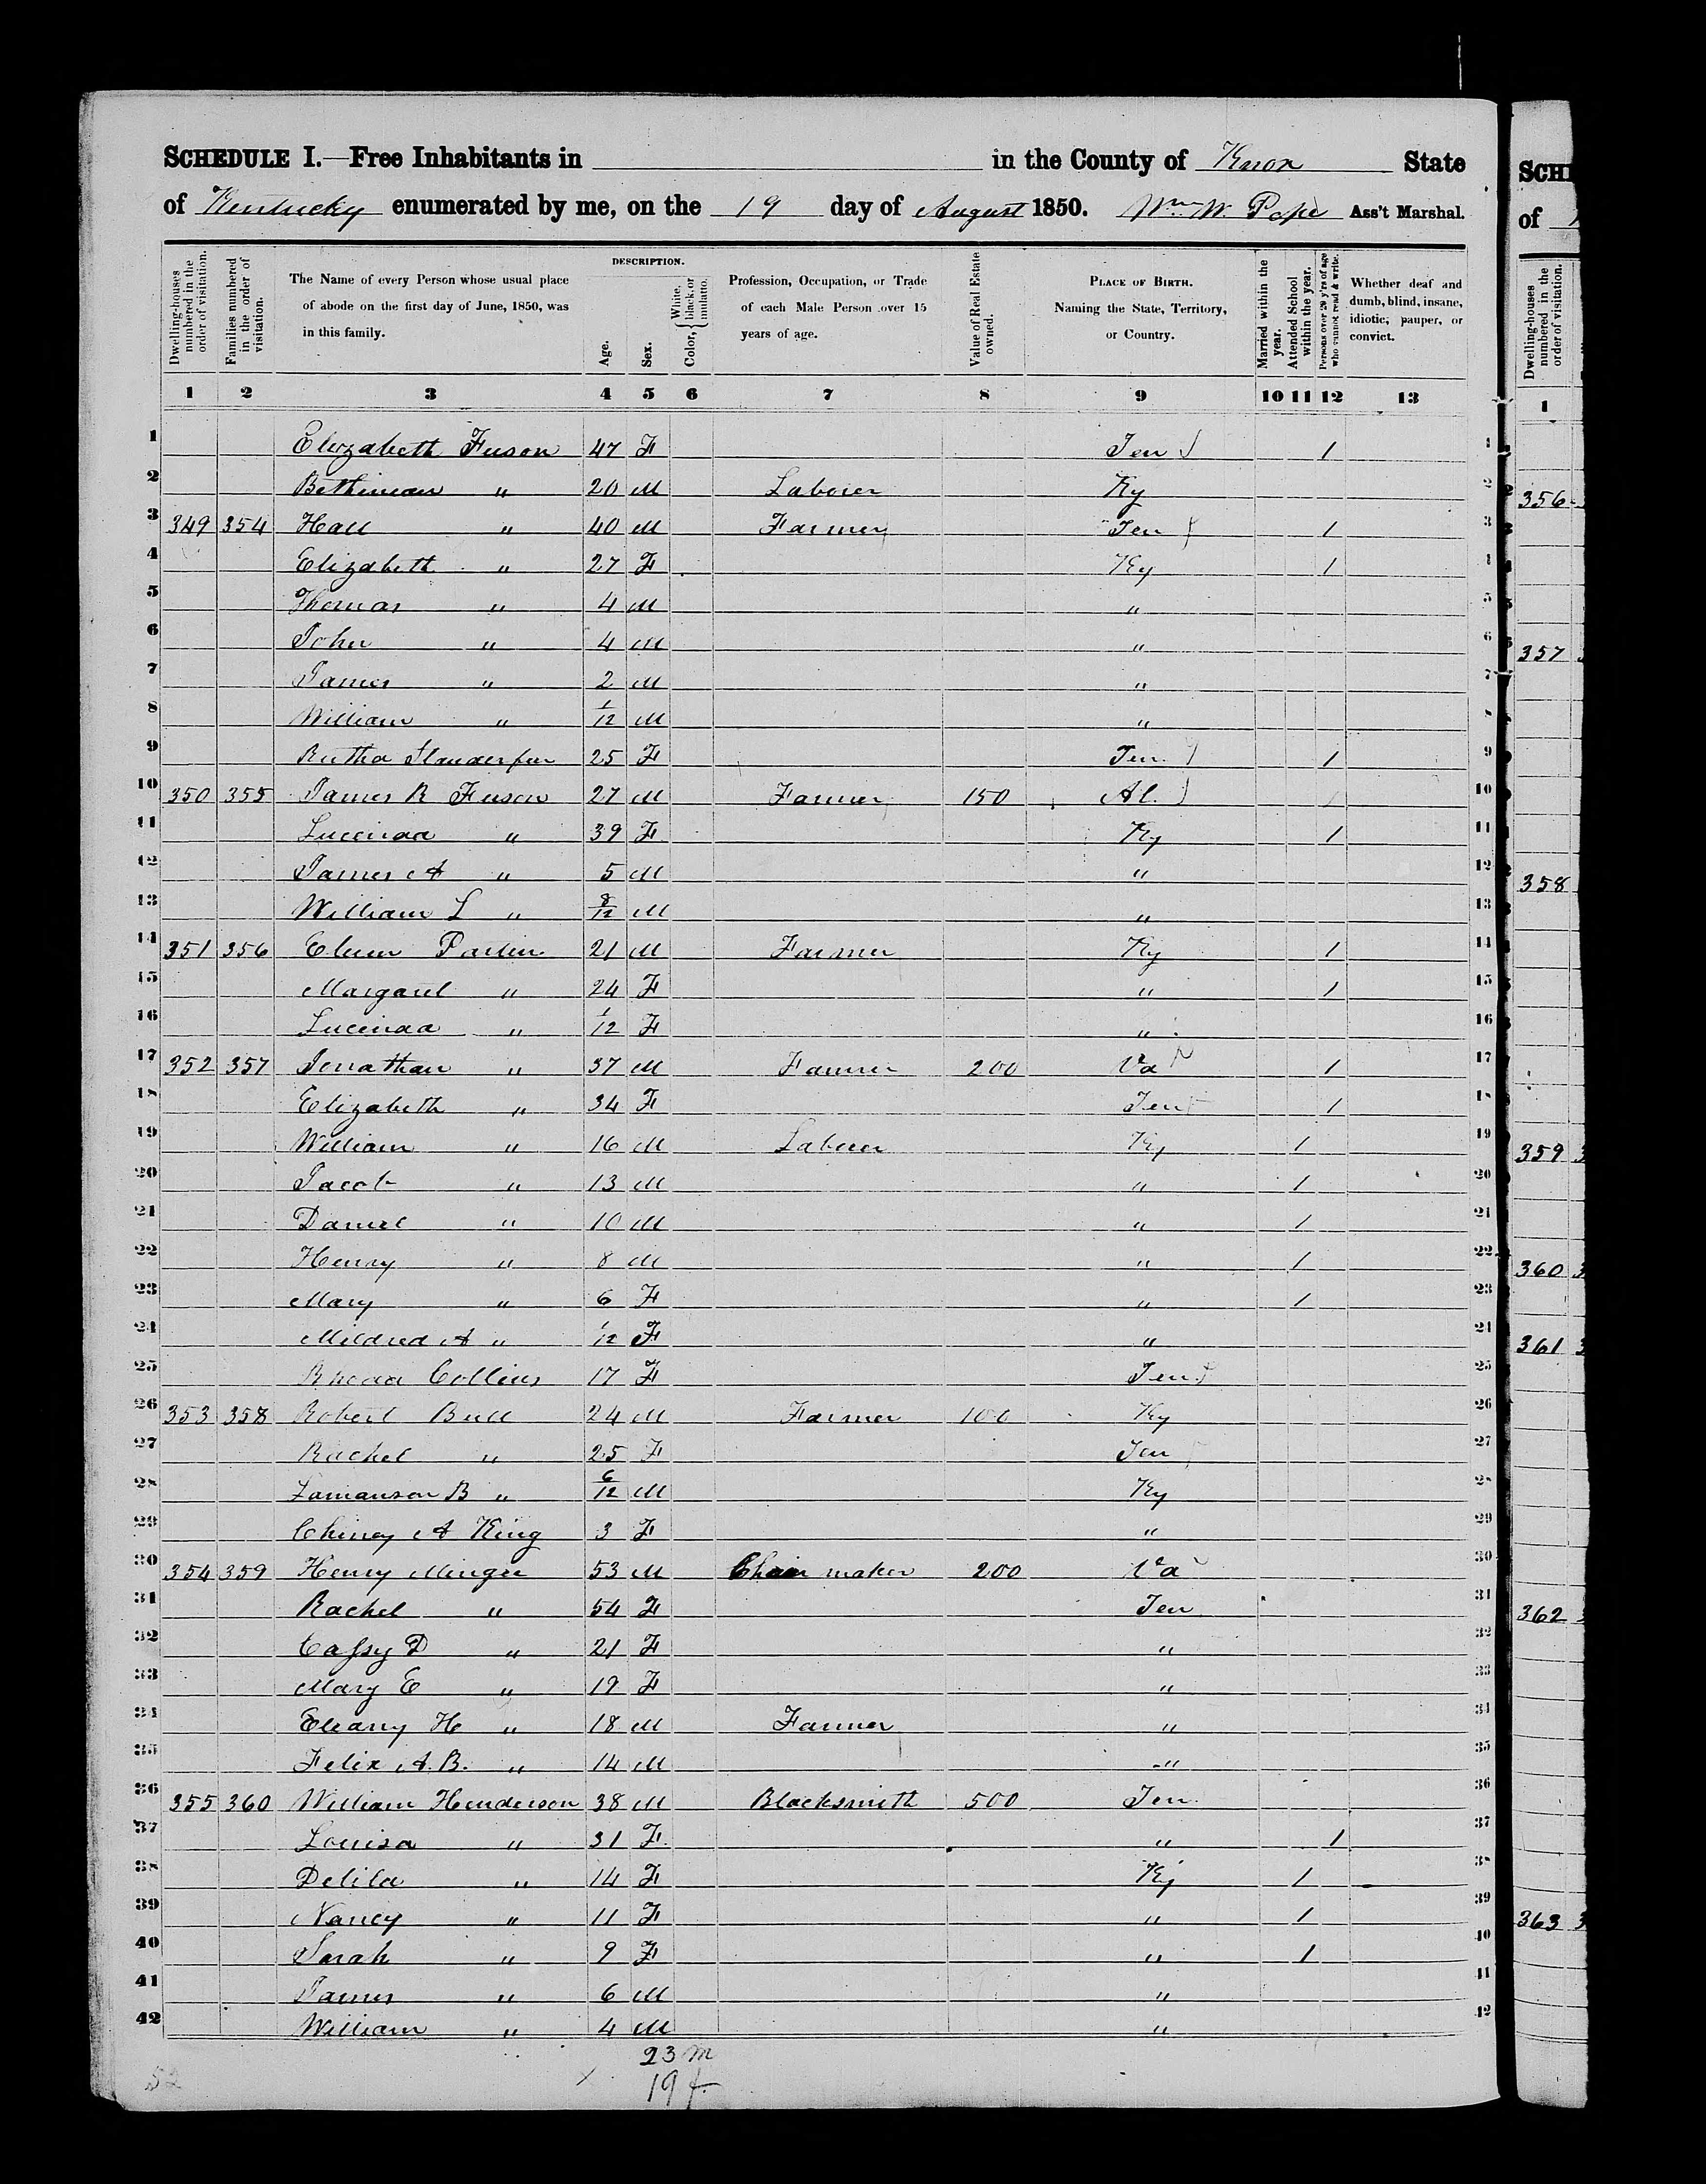 SCHEDULE I.—Free Inhabitants in in the County of Knox State
of Kentucky enumerated by me, on the 19 day of August 1850. Wm W. Pope Ass't Marshal.
Dwelling-houses numbered in the order of visitation.
Families numbered in the order of visitation.
The Name of every Person whose usual place of abode on the first day of June, 1850, was in this family.
DESCRIPTION.
Age.
Sex.
Color, { White, black, or mulatto.
Profession, Occupation, or Trade of each Male Person over 15 years of age.
Value of Real Estate owned.
PLACE OF BIRTH. Naming the State, Territory, or Country.
Married within the year.
Attended School within the year.
Persons over 20 y'rs of age who cannot read & write.
Whether deaf and dumb, blind, insane, idiotic, pauper, or convict.
1 2 3 4 5 6 7 8 9 10 11 12 13
1 Elizabeth Fuson 47 F Ten 1 1
2 20 M Laborer Ky 2
3 349 354 Hall " 40 M Farmer Ten 1 3
4 Elizabeth " 27 F Ky 1 4
5 Thomas " 4 M " 5
6 John " 4 M " 6
7 James " 2 M " 7
8 William " 1/12 M " 8
9 Rutha 25 F Ten. 1 9
10 350 355 James R Fuson 27 M Farmer 150 Al. 10
11 Lucinda " 39 F Ky 1 11
12 James A " 5 M " 12
13 William L " 8/12 M " 13
14 351 356 21 M Farmer Ky 1 14
15 Margaret " 24 F " 1 15
16 Lucinda " 1/12 F " 16
17 352 357 Jonathan " 37 M Farmer 200 Va 1 17
18 Elizabeth " 34 F Ten 1 18
19 William " 16 M Laborer Ky 1 19
20 Jacob " 13 M " 1 20
21 Daniel " 10 M " 1 21
22 Henry " 8 M " 1 22
23 Mary " 6 F " 1 23
24 Mildred A " 1/12 F " 24
25 Rhoda Collins 17 F Ten. 25
26 353 358 Robert Bull 24 M Farmer 100 Ky 26
27 Rachel " 25 F Ten 27
28 Lamanson B " 6/12 M Ky 28
29 Chincy A King 3 F " 29
30 354 359 Henry Minger 53 M Chair maker 200 Va 30
31 Rachel " 54 F Ten 31
32 Cassy D " 21 F " 32
33 Mary E " 19 F " 33
34 H " 18 M Farmer " 34
35 Felix A. B. " 14 M " 35
36 355 360 William Henderson 38 M Blacksmith 500 Ten. 36
37 Louisa " 31 F " 1 37
38 Delila " 14 F Ky 1 38
39 Nancy " 11 F " 1 39
40 Sarah " 9 F " 1 40
41 James " 6 M " 41
42 William " 4 M " 42
23 m
19 f
52
SCHE
of
Dwelling-houses numbered in the order of visitation.
1
356
357
358
359
360
361
362
363